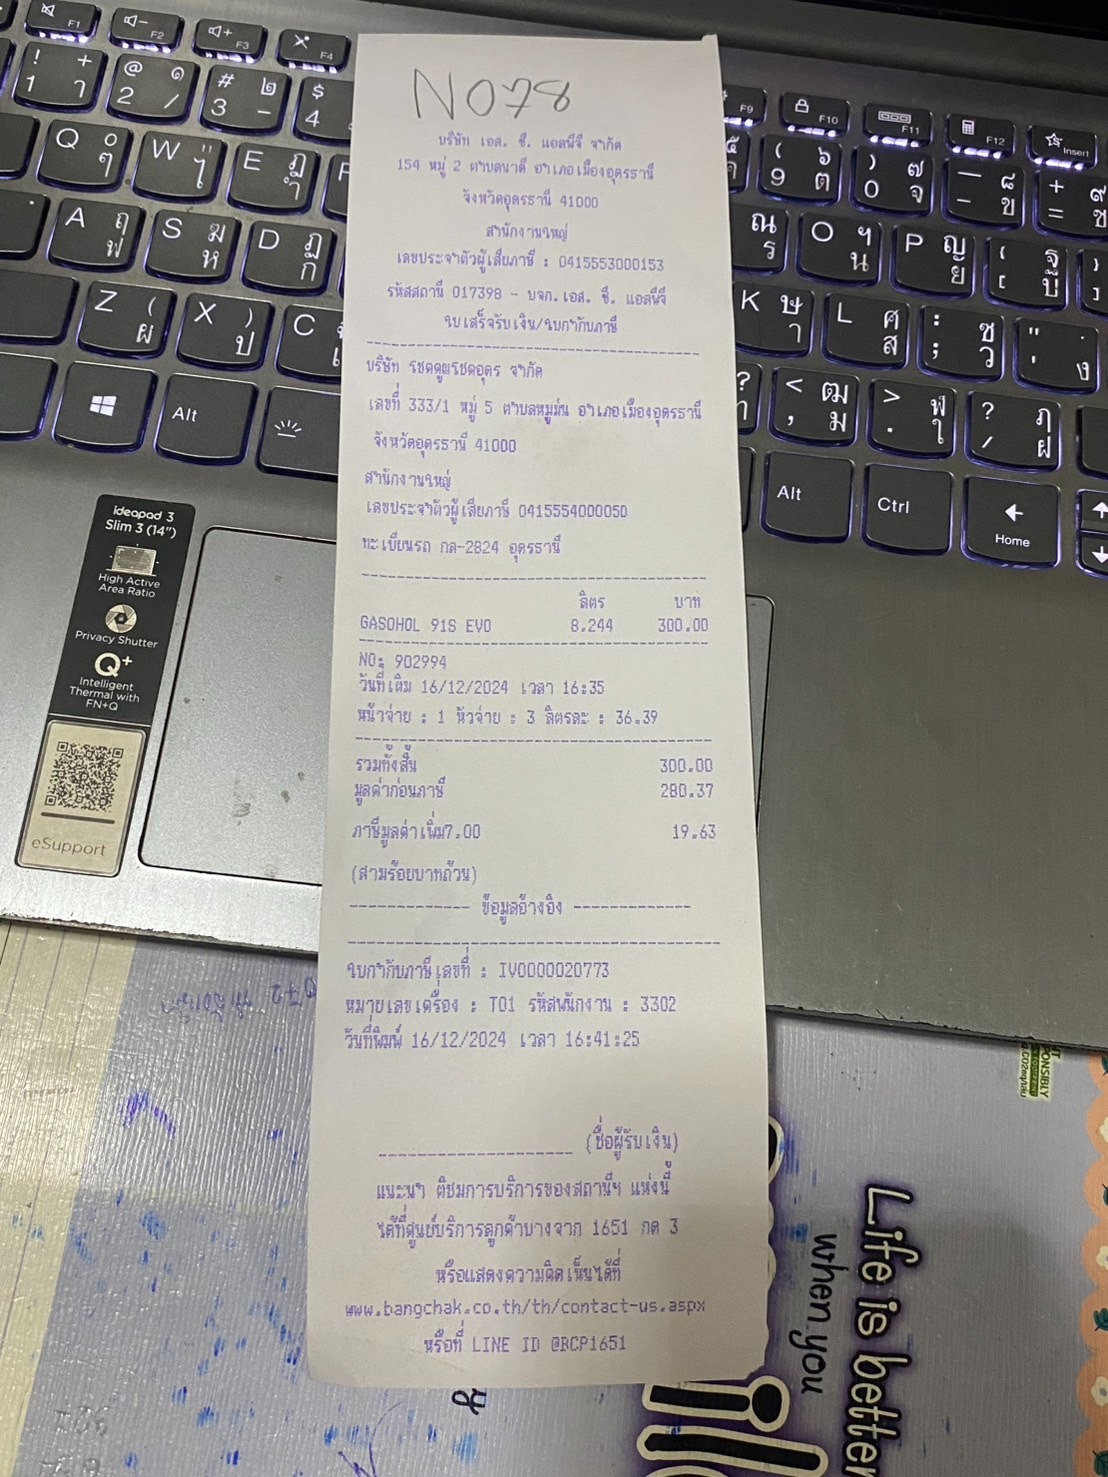 N078
บริษัท เอส. ซี. แอลพีจี จำกัด
154 หมู่ 2 ตำบลนาดี อำเภอเมืองอุดรธานี
จังหวัดอุดรธานี 41000
สำนักงานใหญ่
เลขประจำตัวผู้เสียภาษี : 0415553000153
รหัสสถานี 017398 - บจก.เอส. ซี. แอลพีจี
ใบเสร็จรับเงิน/ใบกำกับภาษี
บริษัท
จำกัด
เลขที่ 333/1 หมู่ 5 ตำบลหมูม่น อำเภอเมืองอุดรธานี
จังหวัดอุดรธานี 41000
สำนักงานใหญ่
เลขประจำตัวผู้เสียภาษี 0415554000050
ทะเบียนรถ กล-2824 อุดรธานี
ลิตร บาท
GASOHOL 91S EVO 8.244 300.00
NO: 902994
วันที่เติม 16/12/2024 เวลา 16:35
หน้าจ่าย : 1 หัวจ่าย : 3 ลิตรละ : 36.39
รวมทั้งสิ้น 300.00
มูลค่าก่อนภาษี 280.37
ภาษีมูลค่าเพิ่ม7.00 19.63
(สามร้อยบาทถ้วน)
------------- ข้อมูลอ้างอิง -------------
ใบกำกับภาษีเลขที่ : IV0000020773
หมายเลขเครื่อง : T01 รหัสพนักงาน : 3302
วันที่พิมพ์ 16/12/2024 เวลา 16:41:25
(ชื่อผู้รับเงิน)
แนะนำ ติชมการบริการของสถานีฯ แห่งนี้
ได้ที่ศูนย์บริการลูกค้าบางจาก 1651 กด 3
หรือแสดงความคิดเห็นได้ที่
www.bangchak.co.th/th/contact-us.aspx
หรือที่ LINE ID @BCP1651
ideapad 3
Slim 3 (14")
High Active
Area Ratio
Privacy Shutter
Q+
Intelligent
Thermal with
FN+Q
eSupport
Alt
Alt
Ctrl
Home
Insert
Life is better
when you